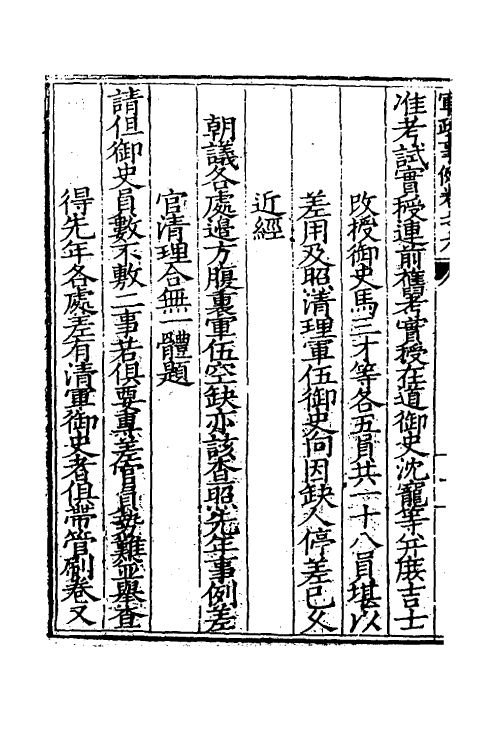 軍政事例卷之六
准考試實授連前舊考實授在道御史沈寵等并庶吉士
改授御史馬三才等各五員共一十八員堪以
差用及照清理軍伍御史向因缺人停差已久
近經
朝議各處邊方腹裏軍伍空缺亦該查照先年事例差
官清理合無一體題
請但御史員數不敷二事若俱要專差官員勢難並舉查
得先年各處差有清軍御史者俱帶管刷卷又